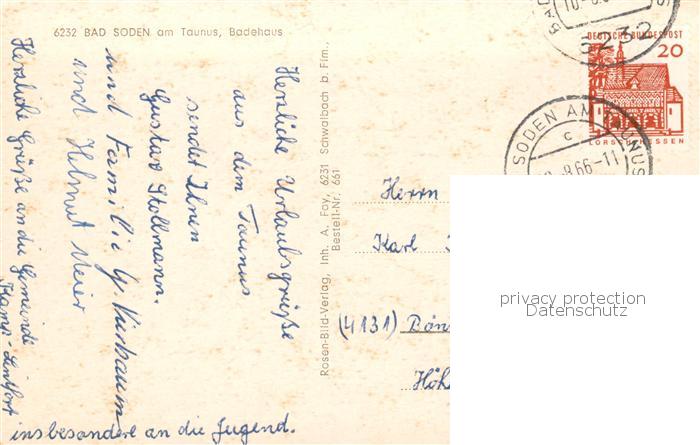 6232 BAD SODEN am Taunus, Badehaus
Herzliche Urlaubsgrüße
aus dem Taunus
sendet Ihnen
Gustav Stollmann.
und Familie G. Nürbaum
und Helmut Meier
Herzliche Grüße an die Gemeinde
Kamp-Lintfort
insbesondere an die Jugend.
Rosen-Bild-Verlag, Inh. A. Fay, 6231 Schwalbach b. Ffm.,
Bestell-Nr. 661
6232
DEUTSCHE BUNDESPOST
20
LORSCH/HESSEN
SODEN AM TAUNUS
c
8.66-11
Herrn
Karl
(4131) Bön
Höh
privacy protection
Datenschutz